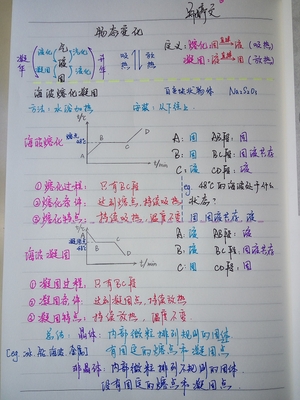 物态变化
气 液 固
液化 汽化
凝华 升华
吸热 放热
定义：熔化：固→液（吸热）
凝固：液→固（放热）
海波熔化凝固
白色块状物体 Na₂S₂O₃
方法：水浴加热
t/℃
海波熔化
熔点48℃
A B C D
t/min
A：固 AB段：固
B：固 BC段：固液共存
C：液 CD段：液
①熔化过程：只有BC段
eg. 48℃的海波处于什么状态？
②熔化条件：达到熔点，持续吸热
③熔化特点：持续吸热，温度不变
固、固液共存、液
t/℃
海波凝固
A B C D
t/min
A：液 AB段：液
B：液 BC段：固液共存
C：固 CD段：固
①凝固过程：只有BC段
②凝固条件：达到凝固点，持续放热
③凝固特点：持续放热，温度不变
总结：晶体：内部微粒排列规则的固体
[eg. 冰、盐、海波、金属] 有固定的熔点和凝固点
非晶体：内部微粒排列不规则的固体
没有固定的熔点和凝固点